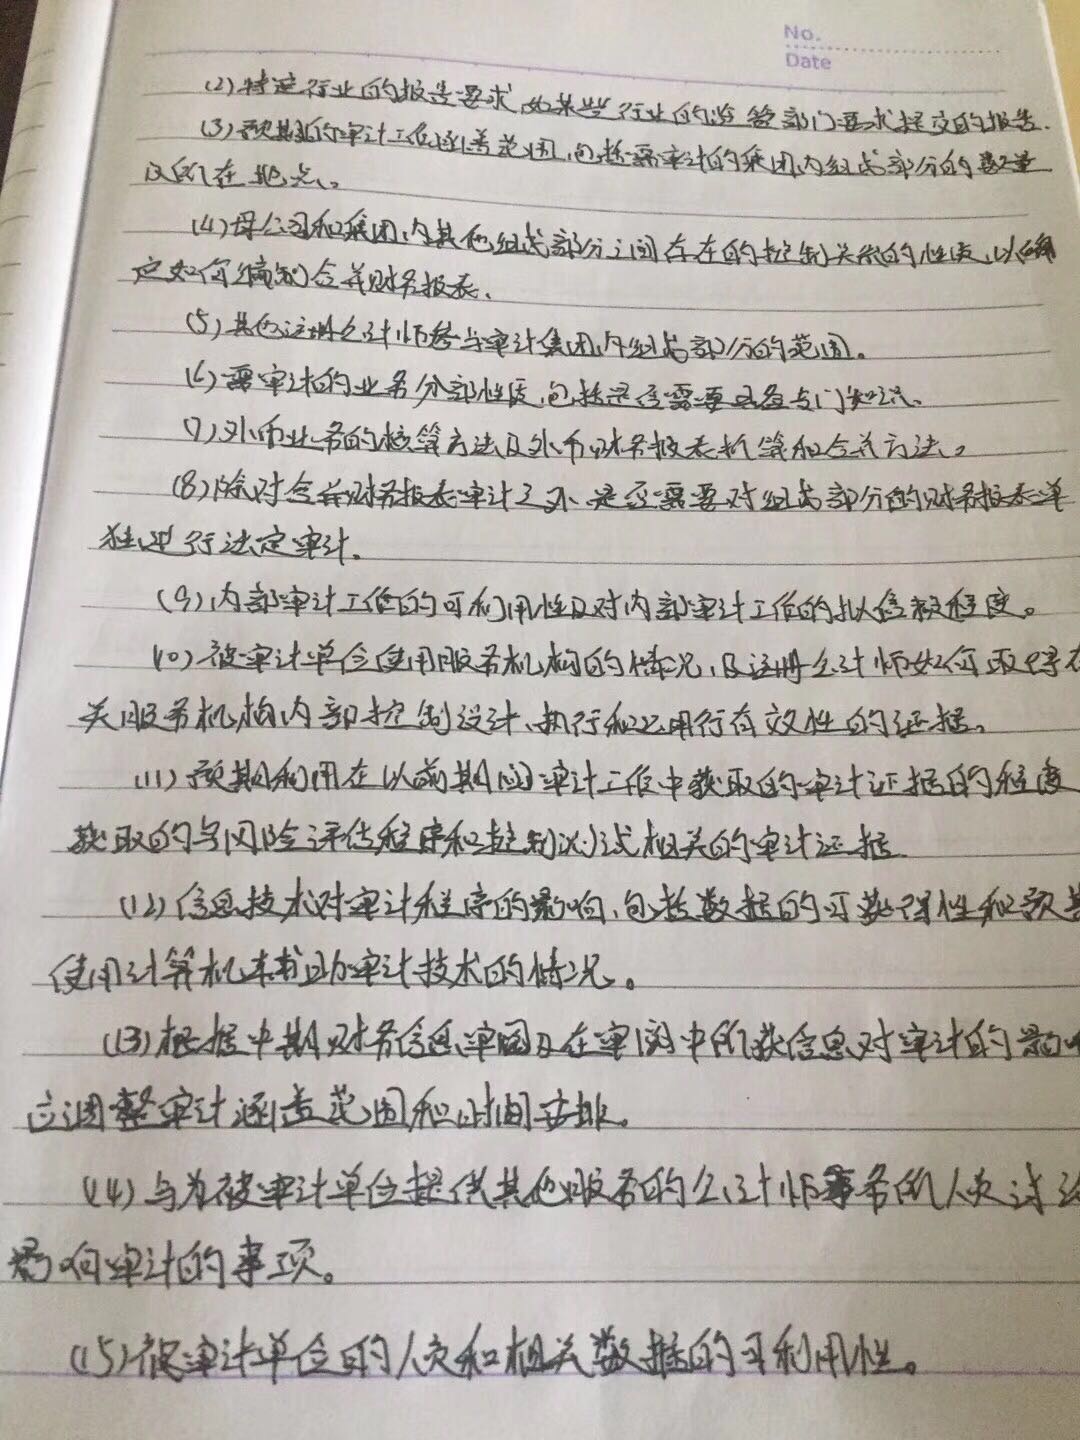 No.
Date
(2)特定行业的报告要求,如某些行业的监管部门要求提交的报告.
(3)预期的审计工作涵盖范围,包括需审计的集团内组成部分的数量
及所在地点。
(4)母公司和集团内其他组成部分之间存在的控制关系的性质,以确
定如何编制合并财务报表.
(5)其他注册会计师参与审计集团内组成部分的范围。
(6)需审计的业务分部性质,包括是否需要具备专门知识.
(7)外币业务的核算方法及外币财务报表折算和合并方法。
(8)除对合并财务报表审计之外,是否需要对组成部分的财务报表单
独进行法定审计.
(9)内部审计工作的可利用性及对内部审计工作的拟信赖程度。
(10)被审计单位使用服务机构的情况,及注册会计师如何取得有
关服务机构内部控制设计、执行和运用行有效性的证据。
(11)预期利用在以前期间审计工作中获取的审计证据的程度
获取的与风险评估程序和控制测试相关的审计证据
(12)信息技术对审计程序的影响,包括数据的可获得性和预期
使用计算机辅助审计技术的情况。
(13)根据中期财务信息审阅及在审阅中所获信息对审计的影响
应调整审计涵盖范围和时间安排。
(14)与为被审计单位提供其他服务的会计师事务所人员讨论
影响审计的事项。
(15)被审计单位的人员和相关数据的可利用性。